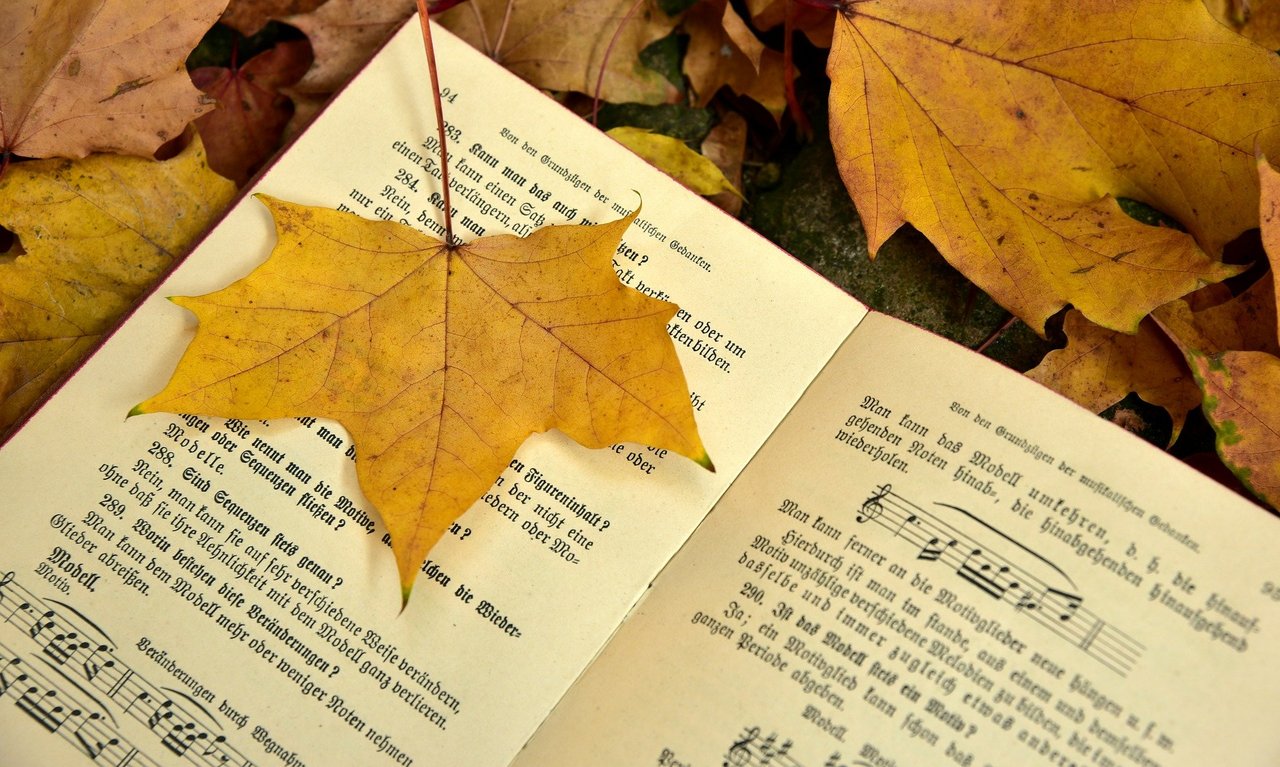 94
Von den Grundzügen der musikalischen Gedanken.
283. Kann man das auch
Man kann einen Satz
einen Takt verlängern, als
284. Kann man
Nein, denn
nur ein
ken?
Takt
oder um
akten bilden.
ibt
die
oder
nt man die
Wie nennt man die Motive,
ngen oder Sequenzen fließen?
Modelle.
en Figureninhalt?
en der nicht eine
iedern oder Mo-
en?
lchen die Wieder-
288. Sind Sequenzen stets genau?
Nein, man kann sie auf sehr verschiedene Weise verändern,
ohne daß sie ihre Aehnlichkeit mit dem Modell ganz verlieren.
289. Worin bestehen diese Veränderungen?
Man kann dem Modell mehr oder weniger Noten nehmen
Glieder abreißen.
Modell.
Motiv.
Veränderungen durch Wegnahm
Von den Grundzügen der musikalischen Gedanken.
Man kann das Modell umkehren, d. h. die hinauf-
gehenden Noten hinab-, die hinabgehenden hinaufgehend
wiederholen.
Man kann ferner an die Motivglieder neue hängen u. s. w.
Hierdurch ist man im stande, aus einem und demselben
Motiv unzählige verschiedene Melodien zu bilden, die immer
dasselbe und immer zugleich etwas anderes
290. Ist das Modell stets ein Motiv?
Ja; ein Motivglied kann schon das
ganzen Periode abgeben.
Modell.